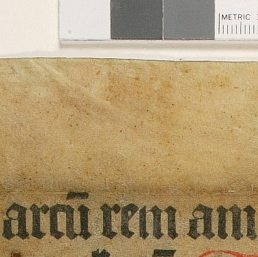 METRIC
artū rem am